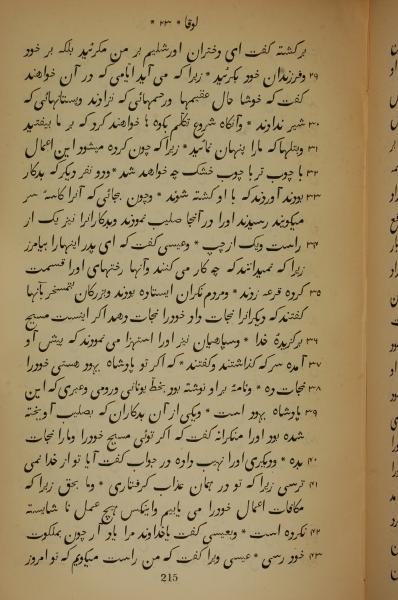 لوقا * ۲۳ *
برکشته کفت ای دختران اورشلیم بر من مکرئید بلکه بر خود
۲۹ وفرزندان خود بکرئید * زیرا که می آید ایامی که در آن خواهند
کفت که خوشا حال عقیمها ورحمهائی که نزادند وپستانهائی که
۳۰ شیر ندادند * وآنکاه شروع تکلم بکوه ها خواهند کرد که بر ما بیفتید
۳۱ وبتلها که مارا پنهان نمائید * زیرا که چون کرده میشود این اعمال
۳۲ با چوب تر با چوب خشک چه خواهد شد * ودو نفر دیکر که بدکار
۳۳ بودند آوردند که با او کشته شوند * وچون بجائی که آنرا کاسۀ سر
میکویند رسیدند اورا در آنجا صلیب نمودند وبدکارانرا نیز یک از
۳۴ راست ویک از چپ * وعیسی کفت که ای پدر اینهارا بیامرز
زیرا که نمیدانند که چه کار می کنند وآنها رختهای اورا قسمت
۳۵ کرده قرعه زدند * ومردم نکران ایستاده بودند وبزرکان بتمسخر بآنها
کفتند که دیکرانرا نجات داد خودرا نجات دهد اکر اینست مسیح
۳۶ برکزیدۀ خدا * وسپاهیان نیز اورا استهزا می نمودند که پیش او
۳۷ آمده سرکه کذاشتند وکفتند * که اکر تو پادشاه یهود هستی خودرا
۳۸ نجات ده * ونامۀ بر او نوشته بود بخط یونانی ورومی وعبری که این
۳۹ پادشاه یهود است * ویکی از آن بدکاران که بصلیب آویخته
شده بود اورا منکرانه کفت که اکر توئی مسیح خودرا ومارا نجات
۴۰ بده * ودیکری اورا نهیب داده در جواب کفت آیا تو از خدا نمی
۴۱ ترسی زیرا که تو در همان عذاب کرفتاری * وما بحق زیرا که
مکافات اعمال خودرا می یابیم واینکس هیچ عمل نا شایسته
۴۲ نکرده است * وبعیسی کفت باخداوند مرا یاد آر چون بملکوت
۴۳ خود رسی * عیسی ویرا کفت که من راست میکویم که تو امروز
215